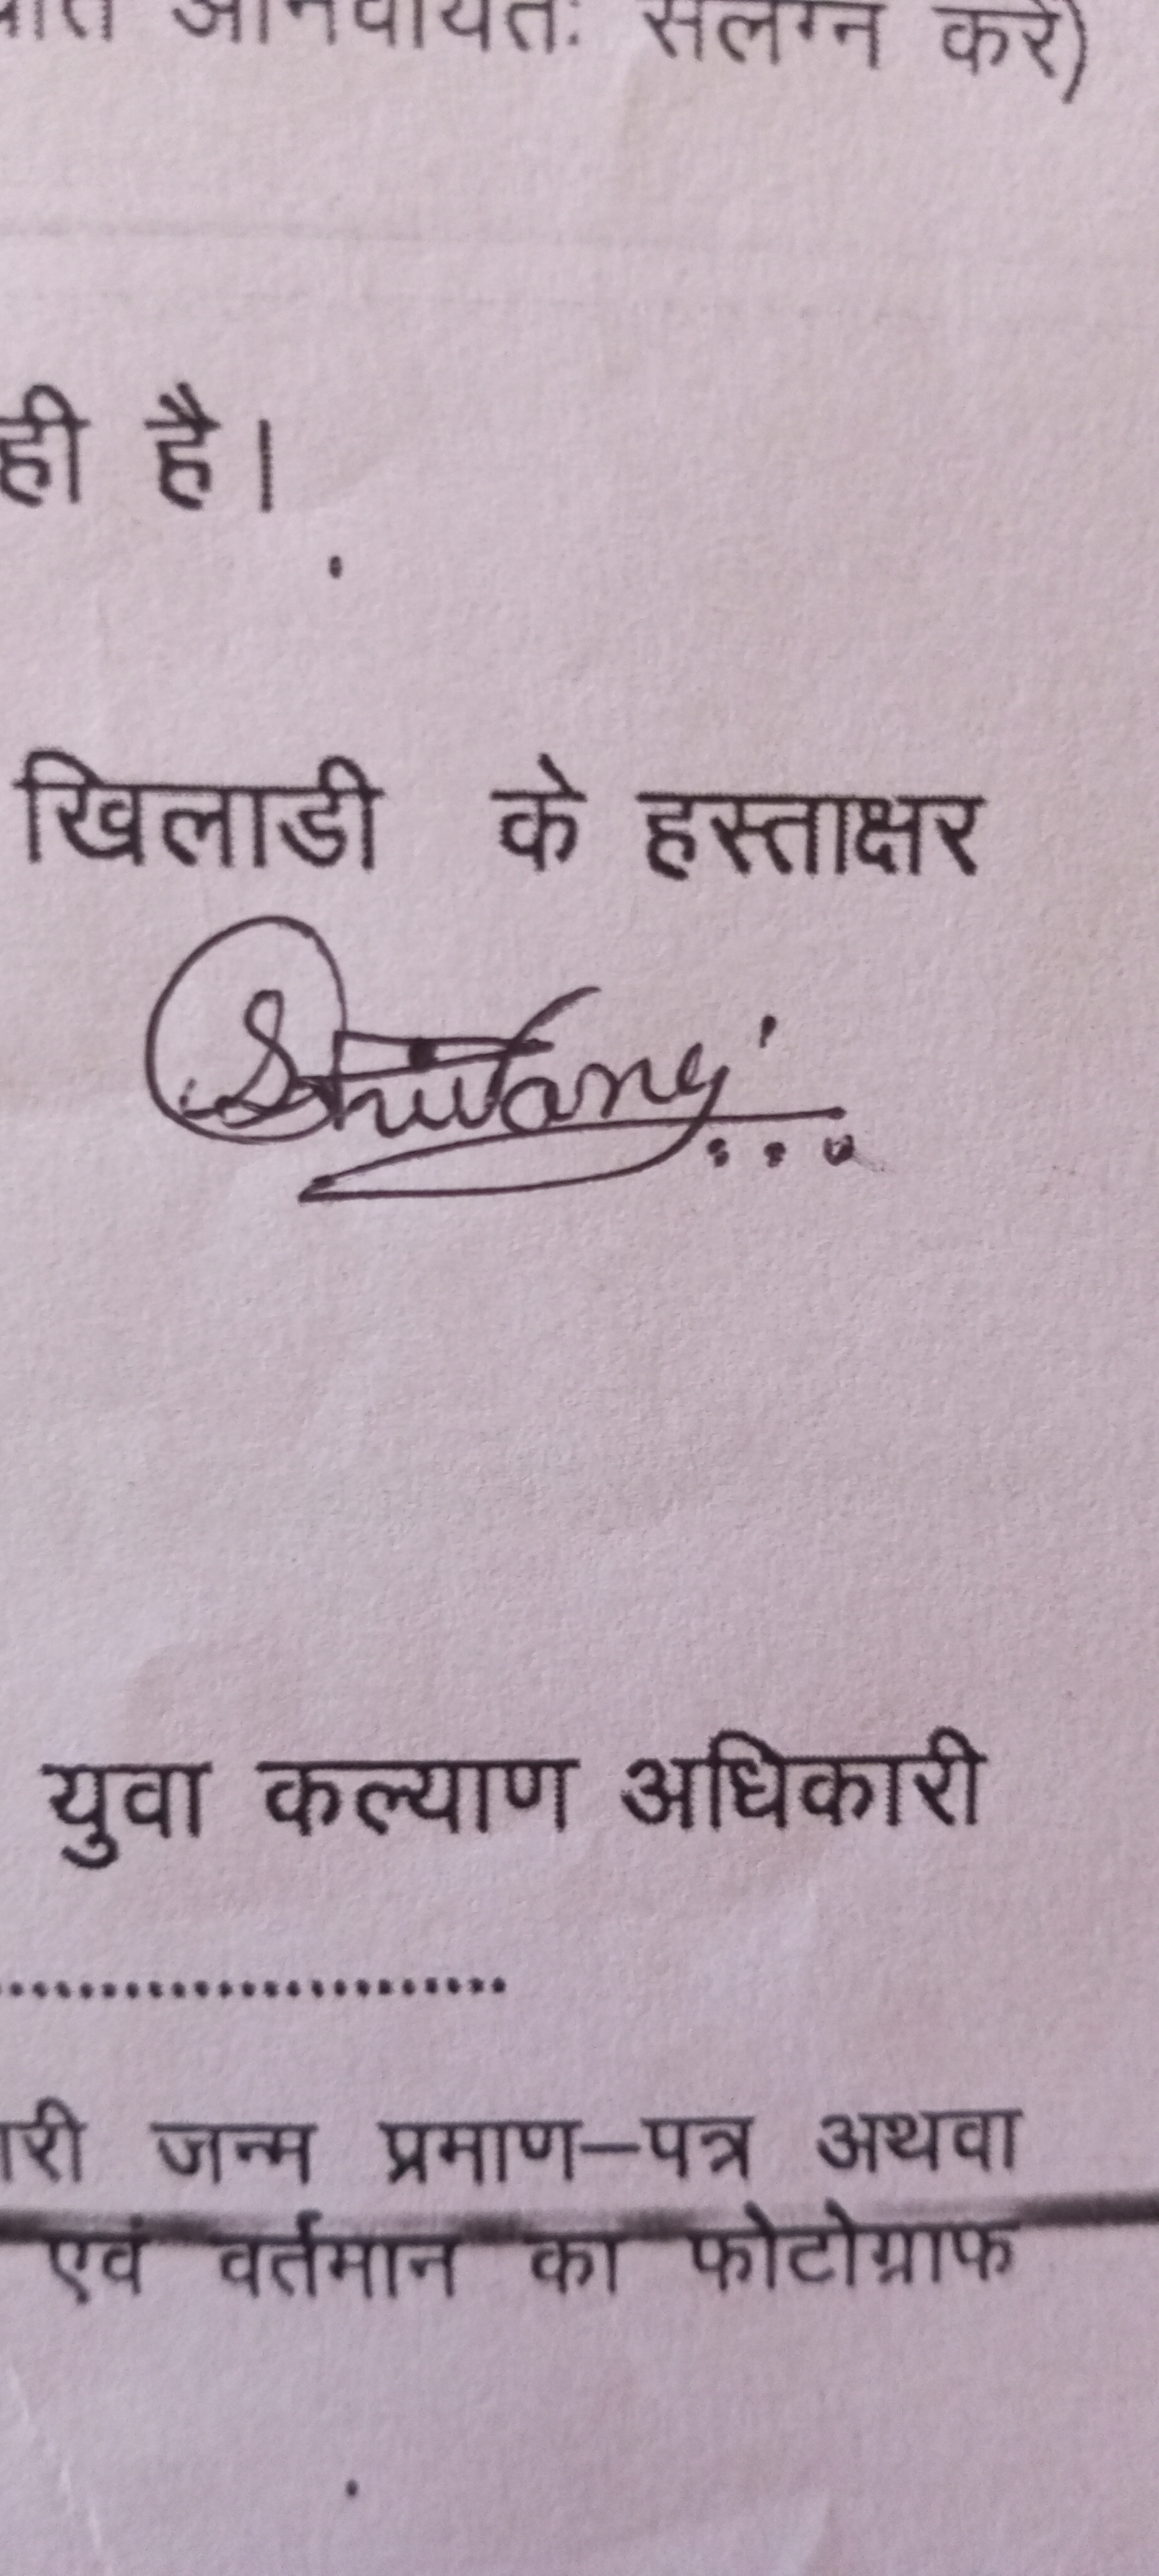 अनिवार्यतः संलग्न करें)
ही है।
खिलाडी के हस्ताक्षर
Shivangi
युवा कल्याण अधिकारी
.......................
जन्म प्रमाण–पत्र अथवा
एवं वर्तमान का फोटोग्राफ